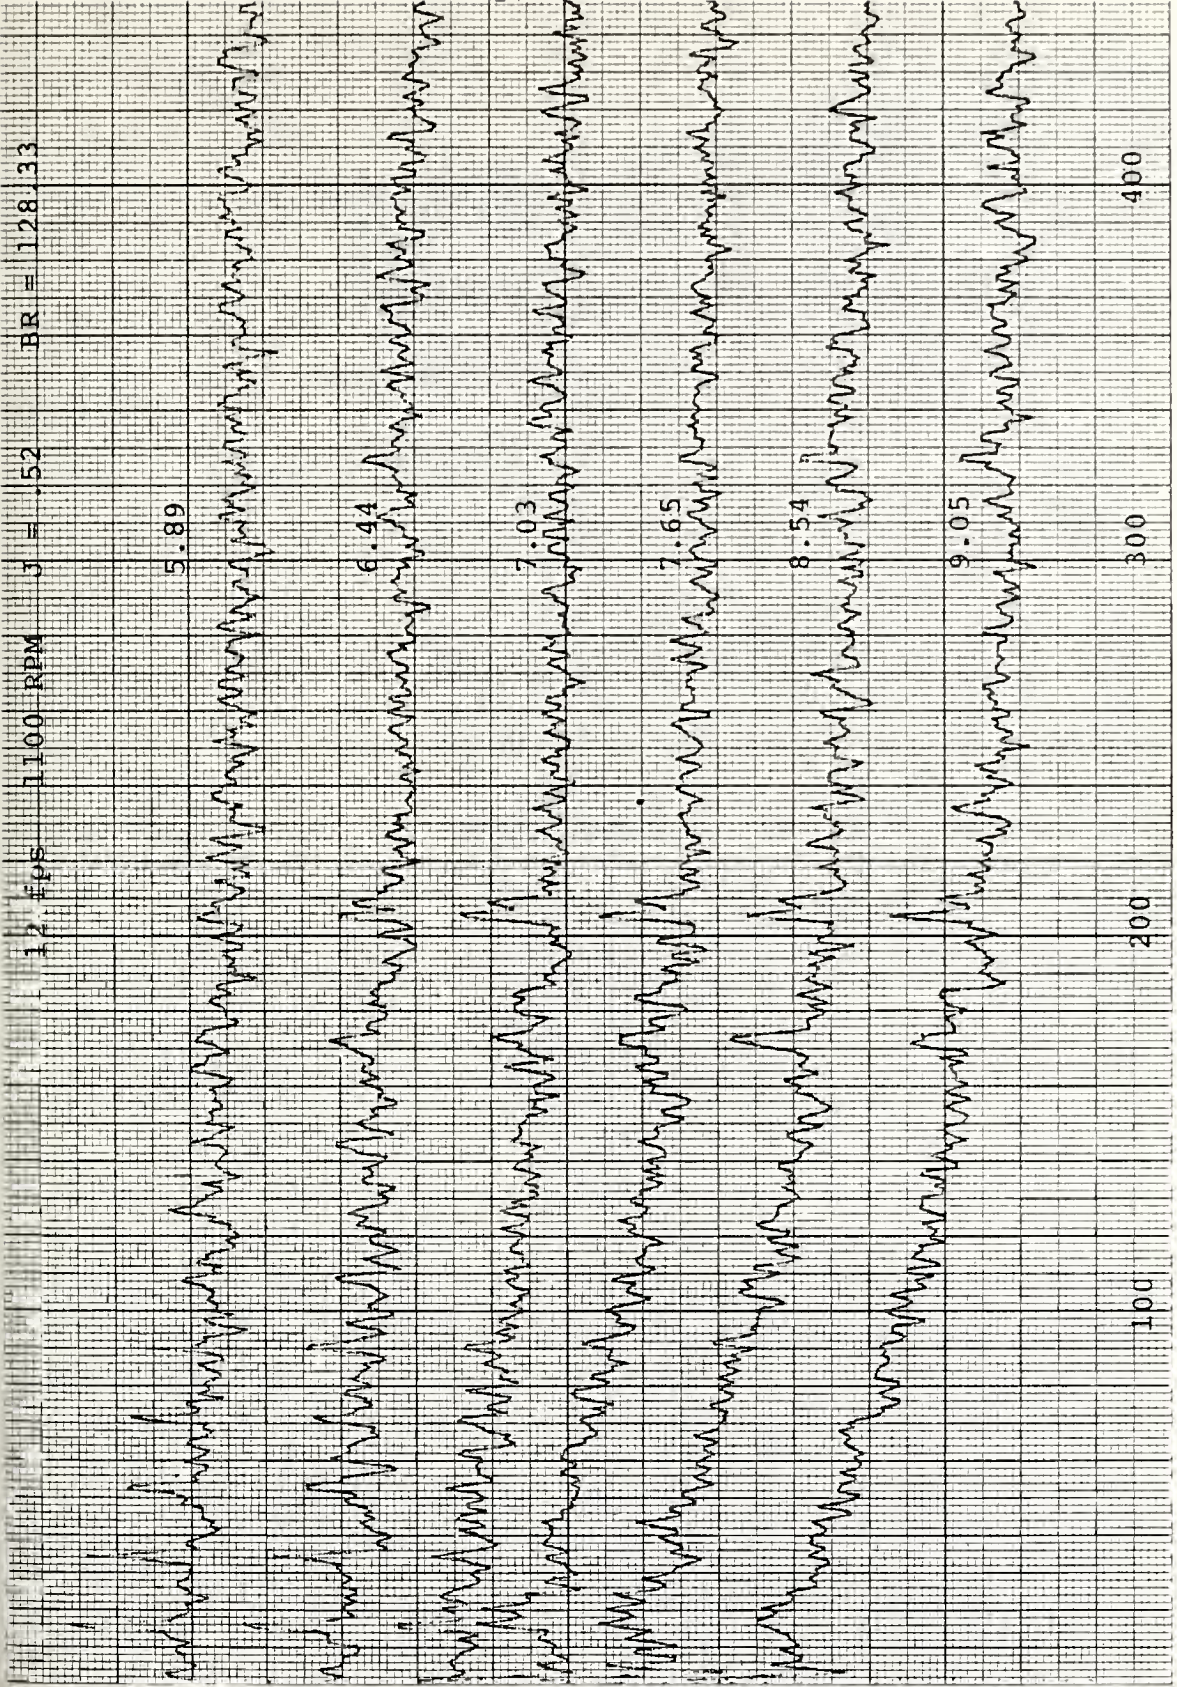 12 fps 1100 RPM J = .52 BR = 128.33
5.89
6.44
7.03
7.65
8.54
9.05
100 200 300 400